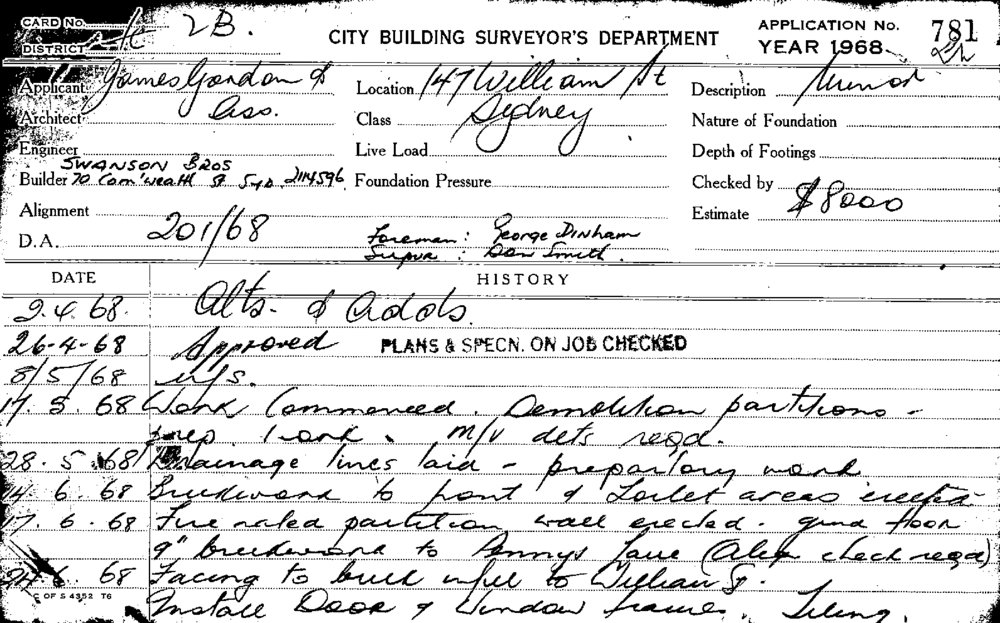 CARD No. 2B.
DISTRICT
CITY BUILDING SURVEYOR'S DEPARTMENT
APPLICATION No. 781
YEAR 1968
Applicant James Gordon &
Architect Ass.
Engineer
Builder SWANSON BROS
70 Com'wealth St Syd. 2114596
Alignment
D.A. 201/68
Location 147 William St
Class Sydney
Live Load
Foundation Pressure
Foreman : George Dinham
Supvr : Don Smith.
Description Minor
Nature of Foundation
Depth of Footings
Checked by
Estimate $8000
DATE HISTORY
2.4.68. Alts. & Adds.
26-4-68 Approved PLANS & SPECN. ON JOB CHECKED
8/5/68 n/s.
17.5.68 Work Commenced. Demolition partitions -
prep. work. M/V dets reqd.
28.5.68 Drainage lines laid - prepartory work
14.6.68 Brickwork to front & Toilet areas erected
17.6.68 Fire rated partition wall erected. grnd floor
9" brickwork to Pennys Lane (check reqd)
24.6.68 Facing to brick infill to William St.
Install Door & Window frames. Tiling.
C OF S 4352 T6